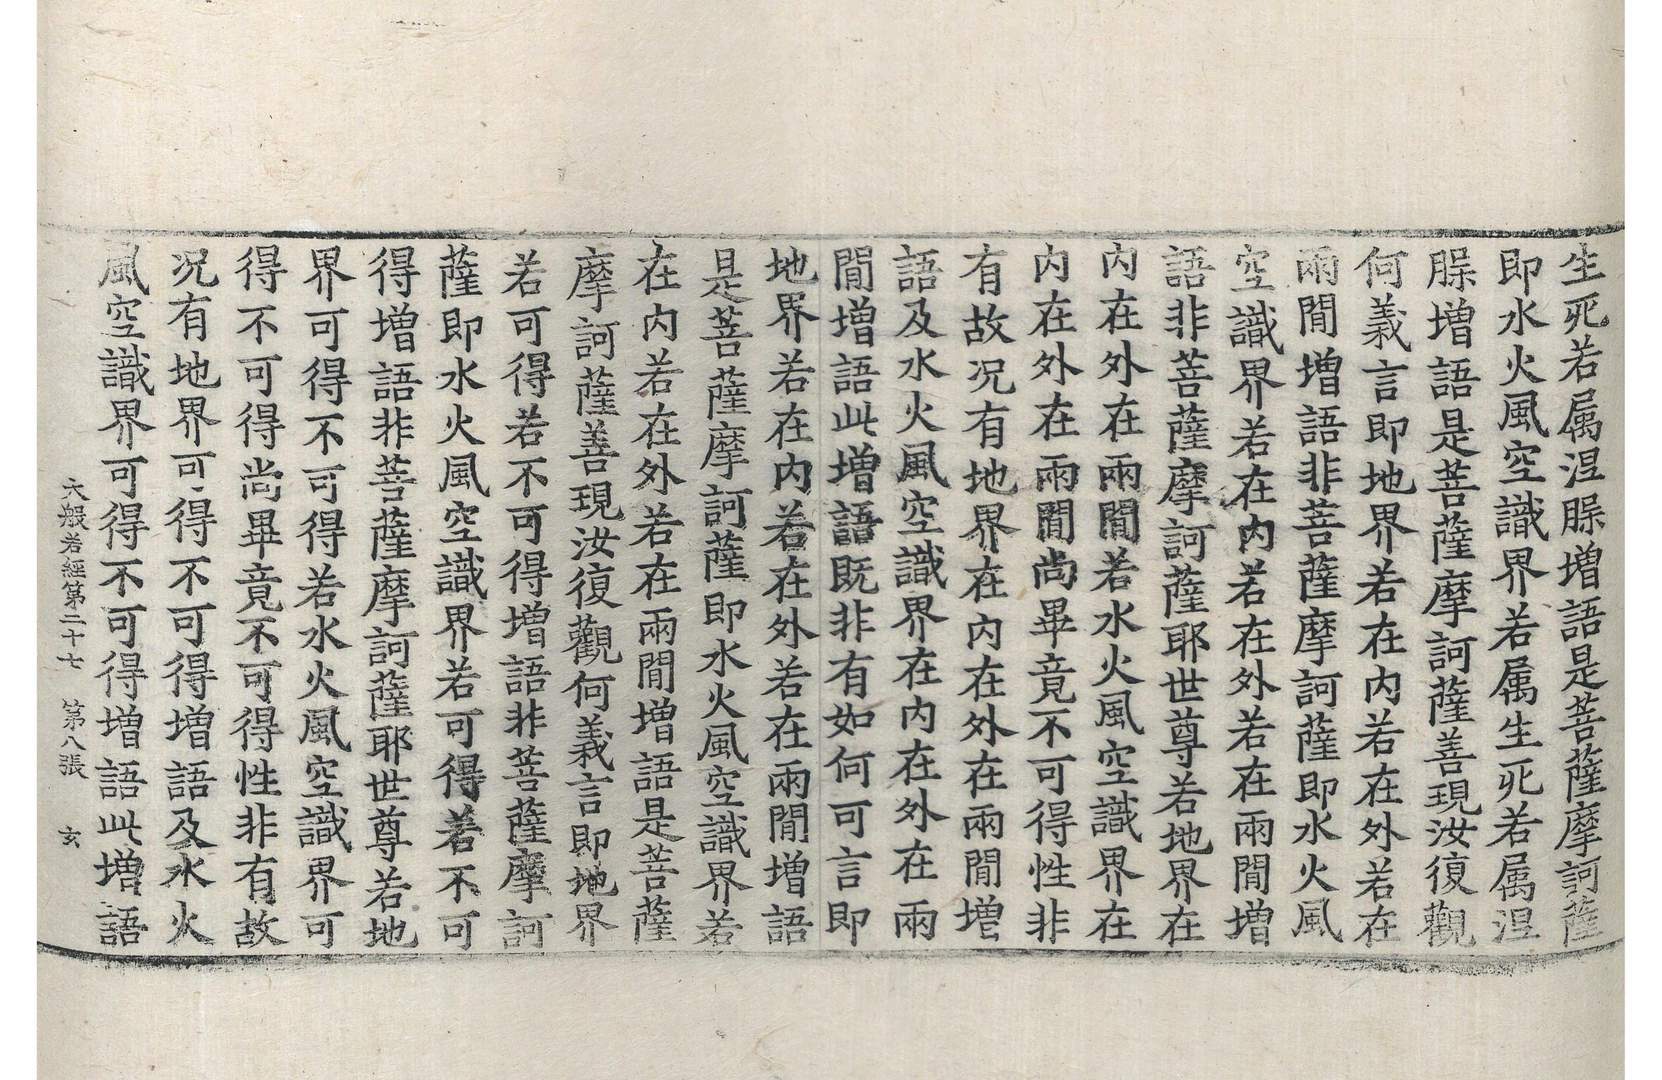 生死若属涅槃增語是菩薩摩訶薩
即水火風空識界若属生死若属涅
槃增語是菩薩摩訶薩善現汝復觀
何義言即地界若在内若在外若在
兩閒增語非菩薩摩訶薩即水火風
空識界若在内若在外若在兩閒增
語非菩薩摩訶薩耶世尊若地界在
内在外在兩閒若水火風空識界在
内在外在兩閒尚畢竟不可得性非
有故况有地界在内在外在兩閒增
語及水火風空識界在内在外在兩
閒增語此增語既非有如何可言即
地界若在内若在外若在兩閒增語
是菩薩摩訶薩即水火風空識界若
在内若在外若在兩閒增語是菩薩
摩訶薩善現汝復觀何義言即地界
若可得若不可得增語非菩薩摩訶
薩即水火風空識界若可得若不可
得增語非菩薩摩訶薩耶世尊若地
界可得不可得若水火風空識界可
得不可得尚畢竟不可得性非有故
况有地界可得不可得增語及水火
風空識界可得不可得增語此增語
大般若經第二十七 第八張 玄